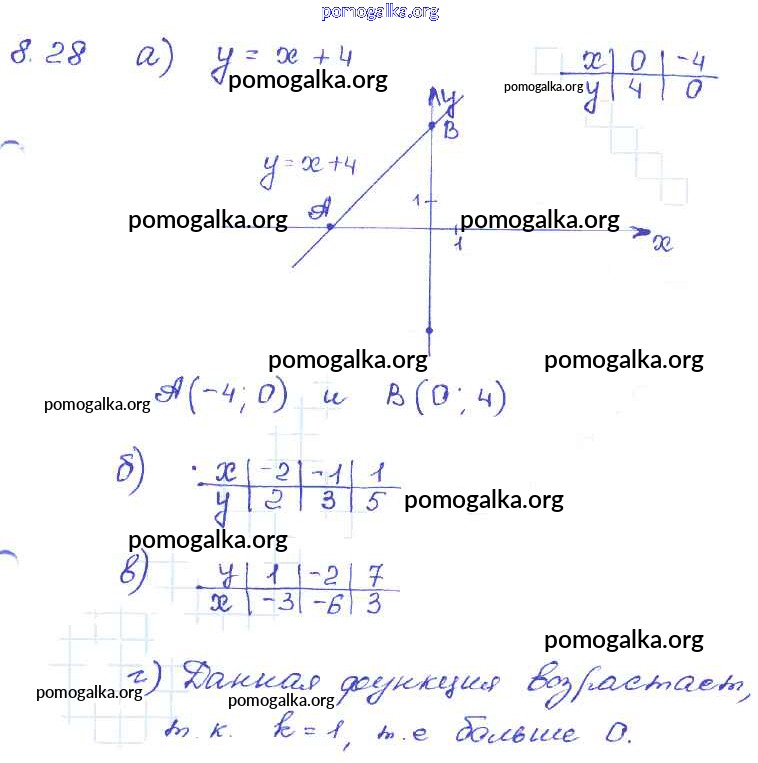 pomogalka.org
8.28 а) y = x + 4
pomogalka.org
x | 0 | -4
pomogalka.org
y | 4 | 0
y
B
y = x + 4
A
1
pomogalka.org pomogalka.org
1
x
pomogalka.org pomogalka.org
pomogalka.org A(-4; 0) и B(0; 4)
б) x | -2 | -1 | 1
y | 2 | 3 | 5 pomogalka.org
pomogalka.org
в) y | 1 | -2 | 7
x | -3 | -6 | 3
pomogalka.org
г) Данная функция возрастает,
pomogalka.org pomogalka.org
т. к. k = 1, т. е больше 0.